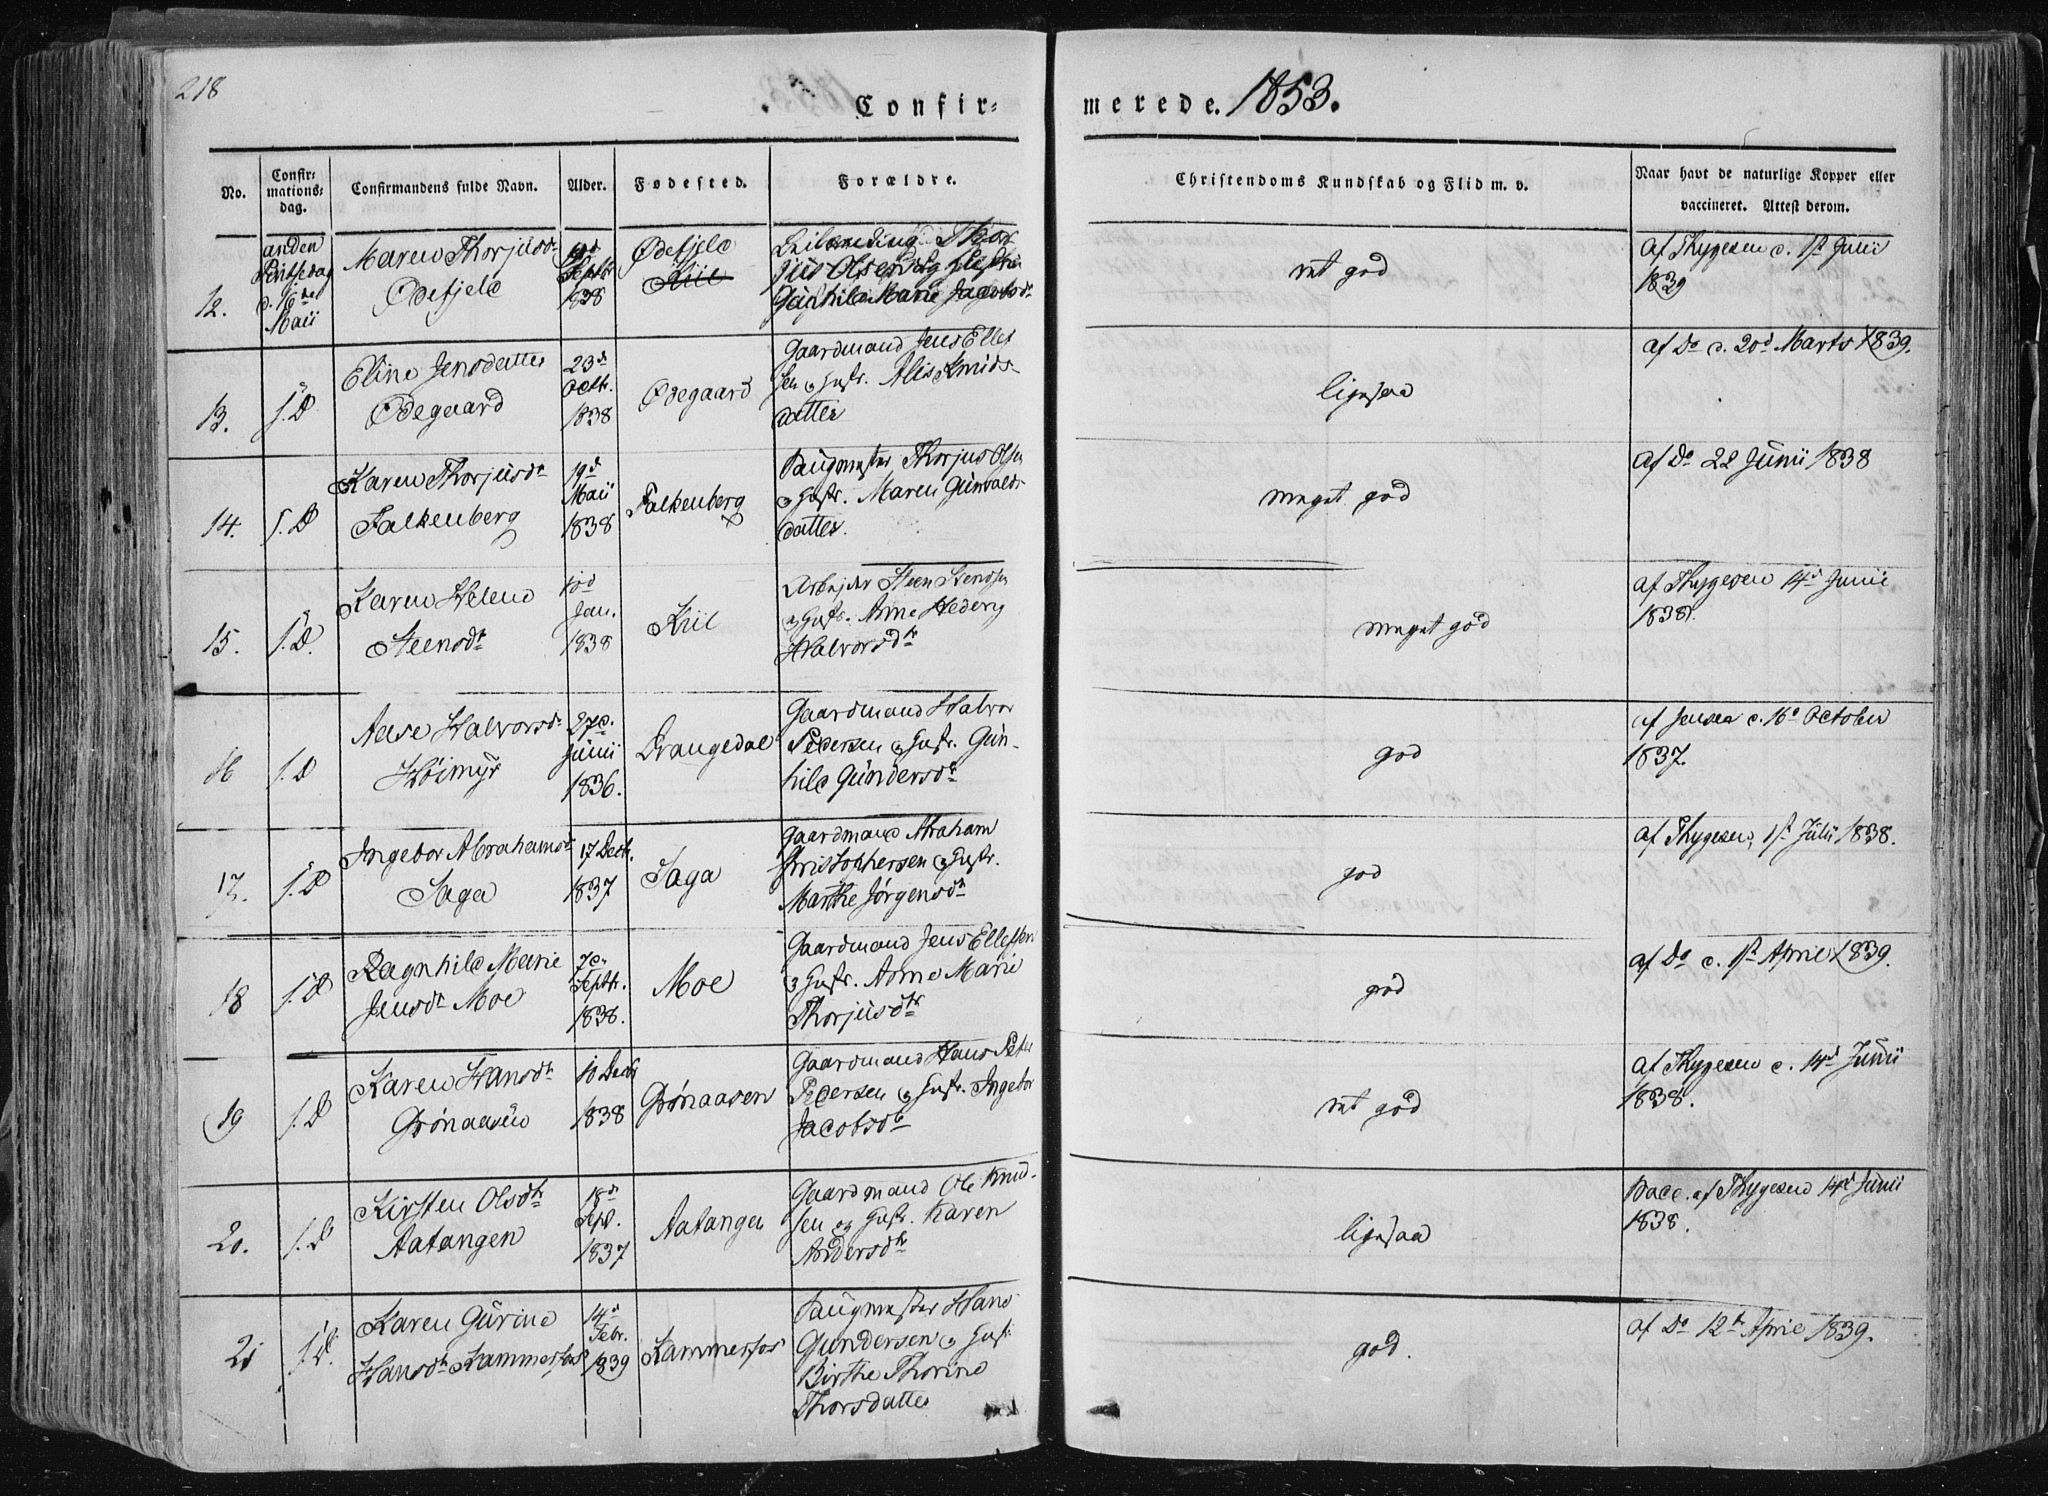 218
Confir-
merede. 1853.
No.
Confir-
mations-
dag.
Confirmandens fulde Navn.
Alder.
Fødested.
Forældre.
Christendoms Kundskab og Flid m. v.
Naar havt de naturlige Kopper eller
vaccineret. Attest derom.
12.
anden
Pintsedag
d. 16de
Maii
Maren Thorjusdr
Ødefjeld
Septbr
1838
Ødefjeld
Kiil
Thor
jus Olsen og Hustru
Gunhild Marie Jacobsdr
ret god
af Thygesen d. 1st Julii
1839
13.
s. D
Eline Jensdatter
Ødegaard
23d
Octbr.
1838
Ødegaard
Gaardmand Jens Ellef
sen og Hustr. Alis Knuds-
datter
ligesaa
af Do d. 20d Marts 1839.
14.
s. D
Karen Thorjusdr
Falkenberg
19d
Maii
1838
Falkenberg
Saugmester Thorjus Olsen
og Hustr. Maren Gunvalds
datter.
meget god
af Do 22 Junii 1838
15.
s. D.
Karen Helene
Steensdr
10d
Jan.
1838
Kiil
Arbejder Steen Stensen
og Hustr. Anne Hedevig
Halvorsdtr
meget god
af Thygesen 14d Junii
1838.
16
s. D
Aase Halvorsdr
Høimyr
27d.
Junii
1836.
Drangedal
Gaardmand Halvor
Pedersen og Hustr. Gun-
hild Gundersdtr
god
af Jensen d. 16d October
1837.
17.
s. D
Ingebor Abrahamsdr
Saga
17 Decbr.
1837
Saga
Gaardmand Abraham
Christophersen og Hustr.
Marthe Jørgensdtr
god
af Thygesen, 1st Julii 1838.
18
s. D
Ragnhild Marie
Jensdr Moe
7d.
Septbr.
1838.
Moe
Gaardmand Jens Ellefsen
og Hustr. Anne Marie
Thorjusdtr
god
af Do d. 1st April 1839.
19
s. D
Karen Hansdtr
Grønaasen
10 Decbr
1838
Grønaasen
Gaardmand Hans Peter
Pedersen og Hustr. Ingebor
Jacobsdtr
ret god
af Thygesen d. 14d Junii
1838.
20.
s. D
Kirsten Olsdtr
Aatangen
18d
Sept.
1837
Aatangen
Gaardmand Ole Knud-
sen og Hustr. Karen
Andersdtr
ligesaa
Vacc. af Thygesen 14d Junii
1838.
21
s. D.
Karen Gurine
Hansdtr Kammerfos
14d
Febr.
1839
Kammerfos
Saugmester Hans
Gundersen og Hustr
Birthe Thorine
Thorsdatter
god.
af Do 12t April 1839.